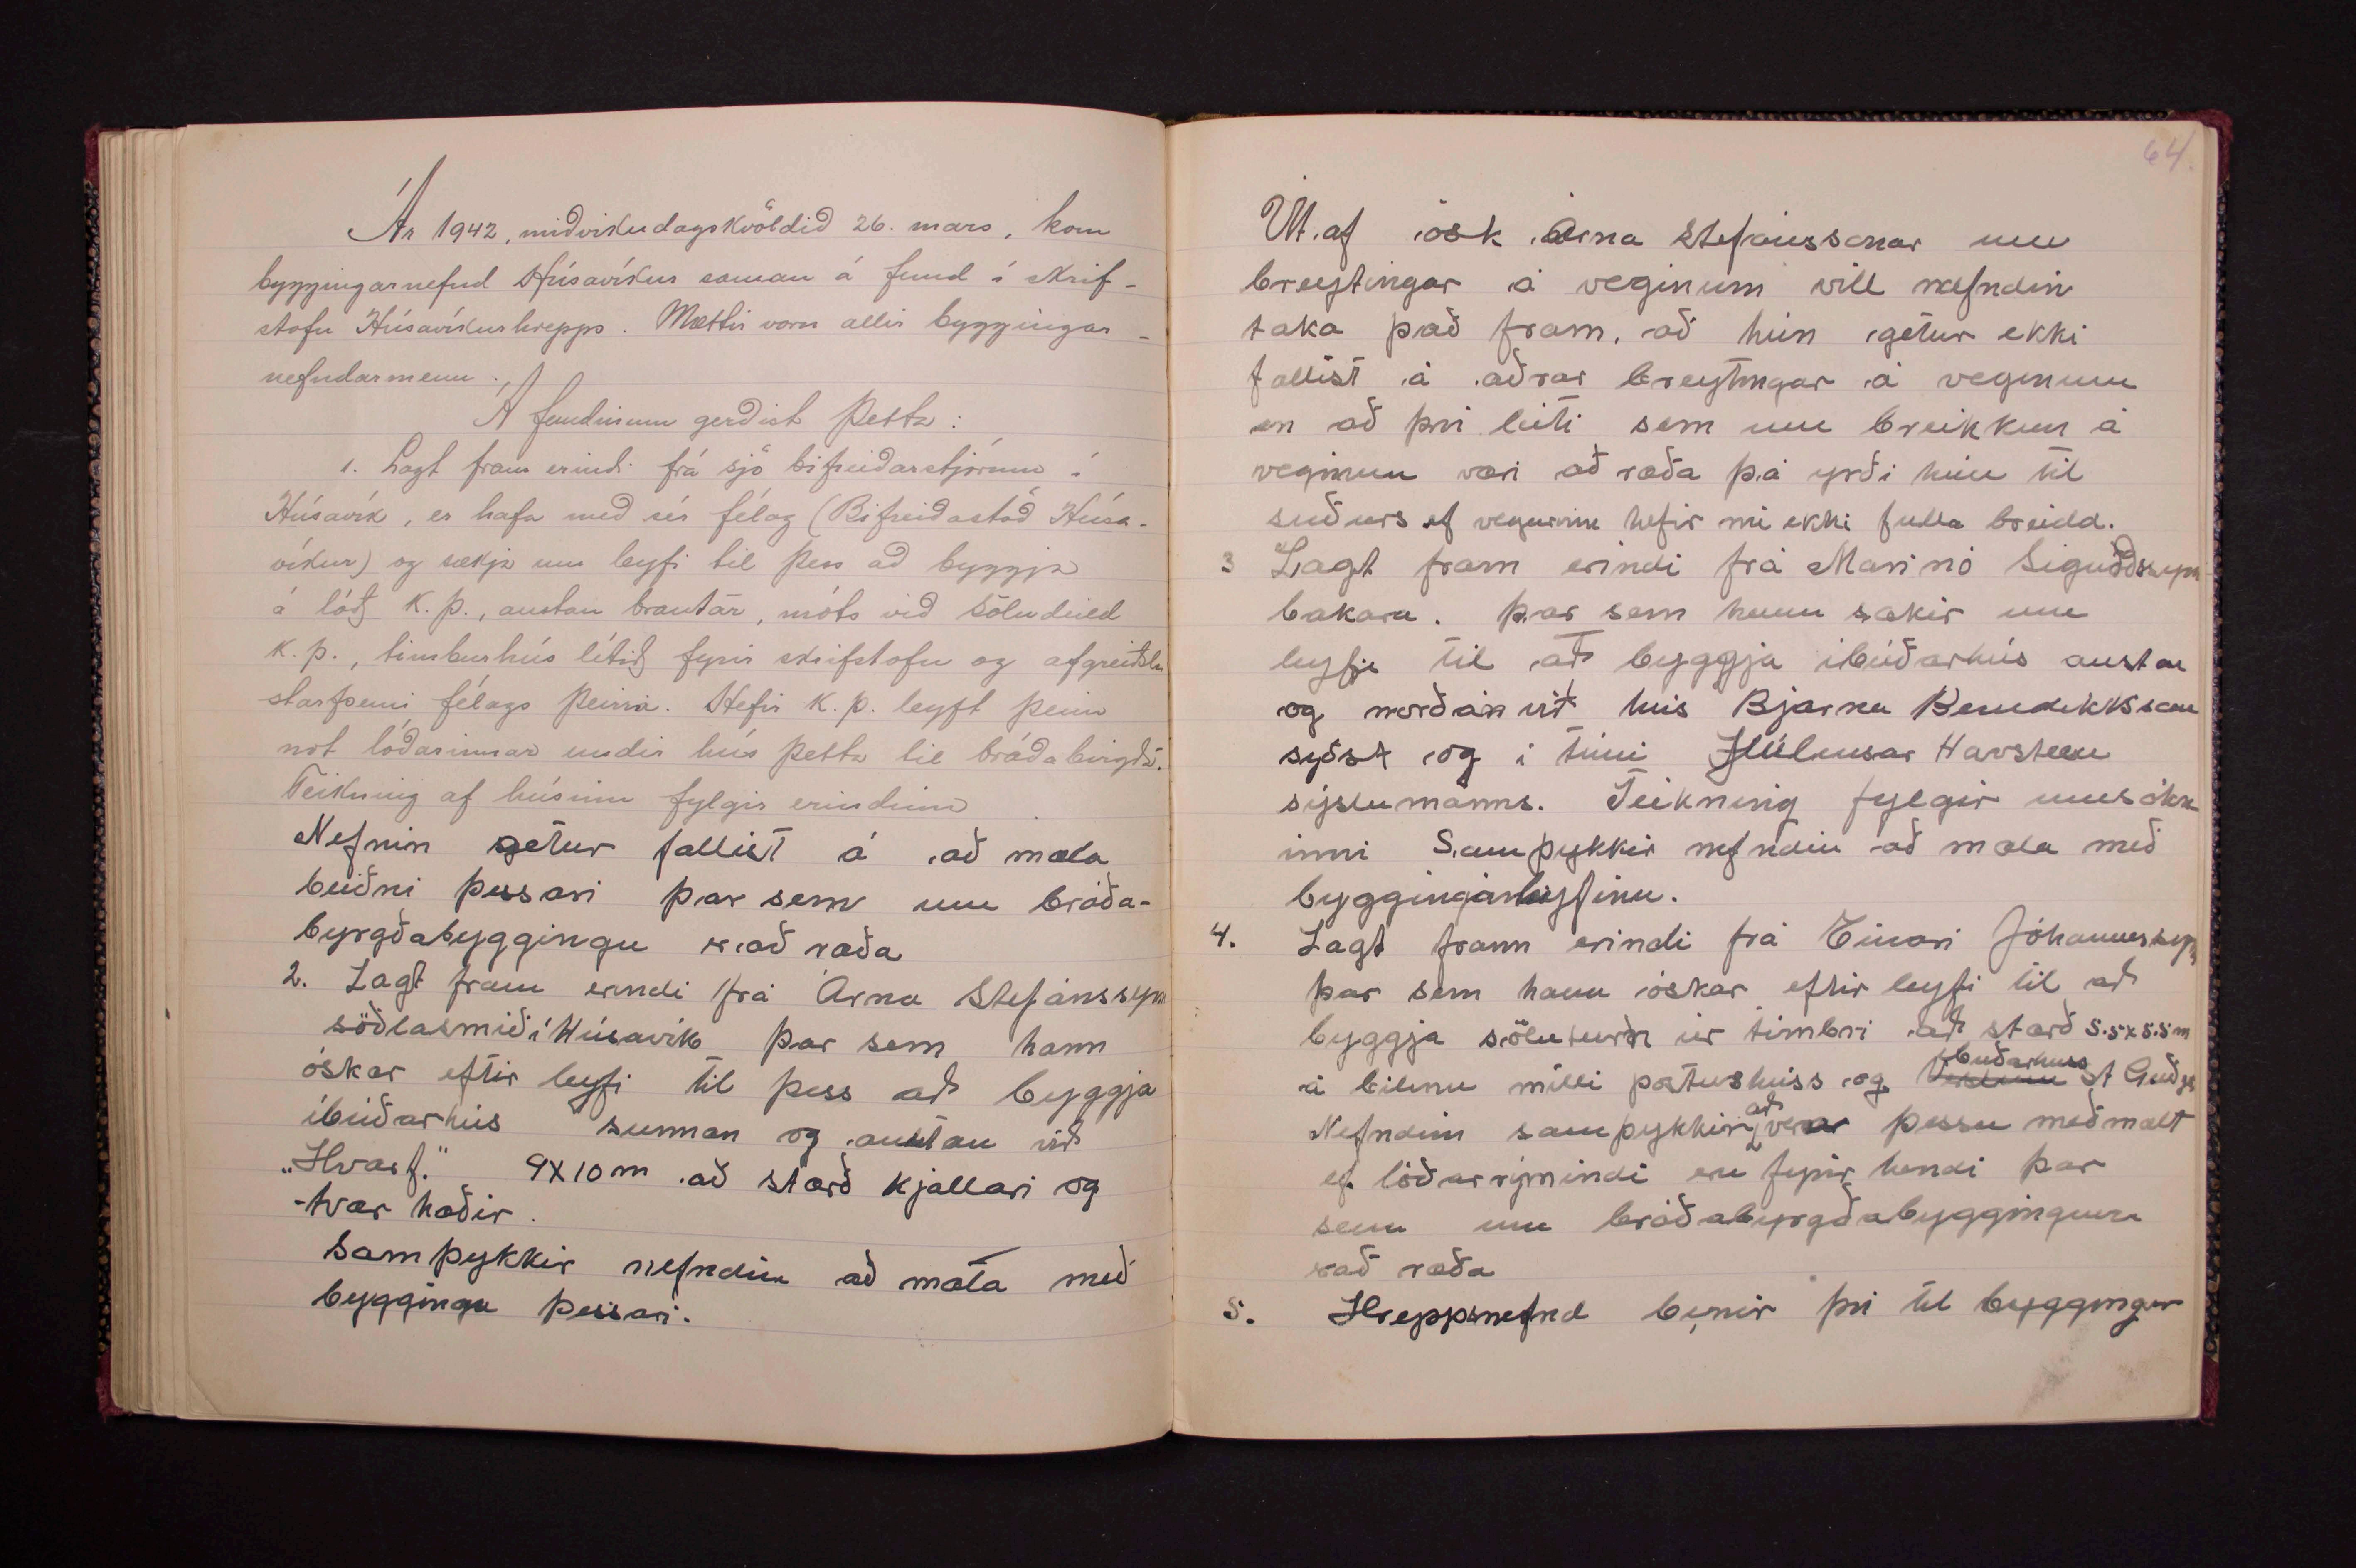 Ár 1942, miðvikudagskvöldið 26. mars, kom
byggingarnefnd Húsavíkur saman á fund í skrif-
stofu Húsavíkurhrepps. Mættir voru allir byggingar-
nefndarmenn.
Á fundinum gerðist þetta:
1. Lagt fram erindi frá sjö bifreiðarstjórum í
Húsavík, er hafa með sér félag (Bifreiðastöð Húsa-
víkur) og sækja um leyfi til þess að byggja
á lóð K.þ., austan brautar, móts við söludeild
K.þ., timburhús lítið fyrir skrifstofu og afgreiðslu
starfsemi félags þeirra. Hefir K.þ. leyft þeim
not lóðarinnar undir hús þetta til bráðabirgða.
Teikning af húsinu fylgir erindinu
Nefnin getur fallist á að mæla
beiðni þessari þar sem um bráða-
byrgðabyggingu er að ræða
2. Lagt fram erindi frá Árna Stefánssyni
söðlasmið í Húsavík þar sem hann
óskar eftir leyfi til þess að byggja
íbúðarhús sunnan og austan við
„Hvarf." 9x10 m að stærð kjallari og
tvær hæðir.
Samþykkir nefndin að mæla með
byggingu þessari.
64.
Út af ósk Árna Stefánssonar um
breytingar á veginum vill nefndin
taka það fram, að hún getur ekki
fallist á aðrar breytingar á veginum
en að því leiti sem um breikkun á
veginum væri að ræða þá yrði hún til
suðurs ef vegurinn hefir nú ekki fulla breidd.
3 Lagt fram erindi frá Marinó Sigurðssyni
bakara. þar sem hann sækir um
leyfi til að byggja íbúðarhús austan
og norðan við hús Bjarna Benediktsson
syðst og í túni Júlíusar Havsteen
sýslumanns. Teikning fylgir umsókn
inni Samþykkir nefndin að mæla með
byggingarleyfinu.
4. Lagt fram erindi frá Einari Jóhannessyni
þar sem hann óskar eftir leyfi til að
byggja söluturn úr timbri að stærð 5.5x5.5m
á bilinu milli pósthúss og íbúðarhúss St Guðj
Nefndin samþykkir að vera þessu meðmælt
ef lóðarrýmindi eru fyrir hendi þar
sem um bráðabyrgðabyggingu
er að ræða
5. Hreppsnefnd beinir því til bygginga